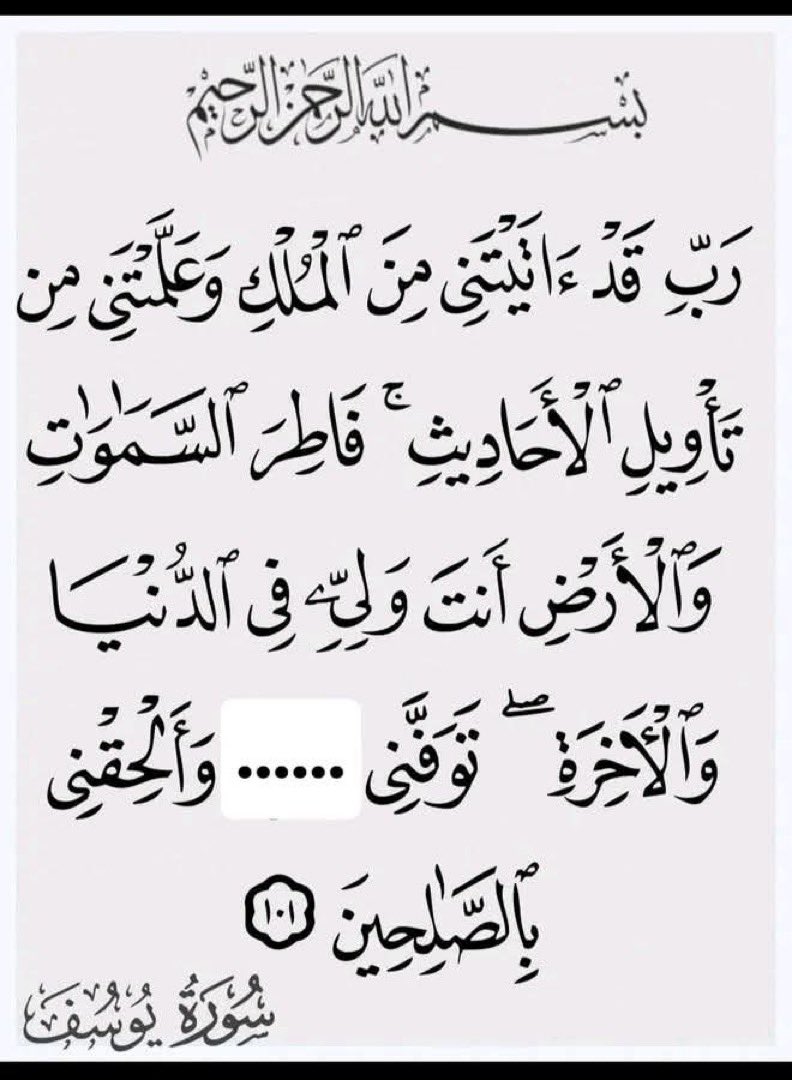 بسم الله الرحمن الرحيم
رَبِّ قَدْ ءَاتَيْتَنِى مِنَ ٱلْمُلْكِ وَعَلَّمْتَنِى مِن
تَأْوِيلِ ٱلْأَحَادِيثِ ۚ فَاطِرَ ٱلسَّمَٰوَٰتِ
وَٱلْأَرْضِ أَنتَ وَلِىِّۦ فِى ٱلدُّنْيَا
وَٱلْأَخِرَةِ ۖ تَوَفَّنِى ...... وَأَلْحِقْنِى
بِٱلصَّٰلِحِينَ ١٠١
سُورَةُ يُوسُفَ